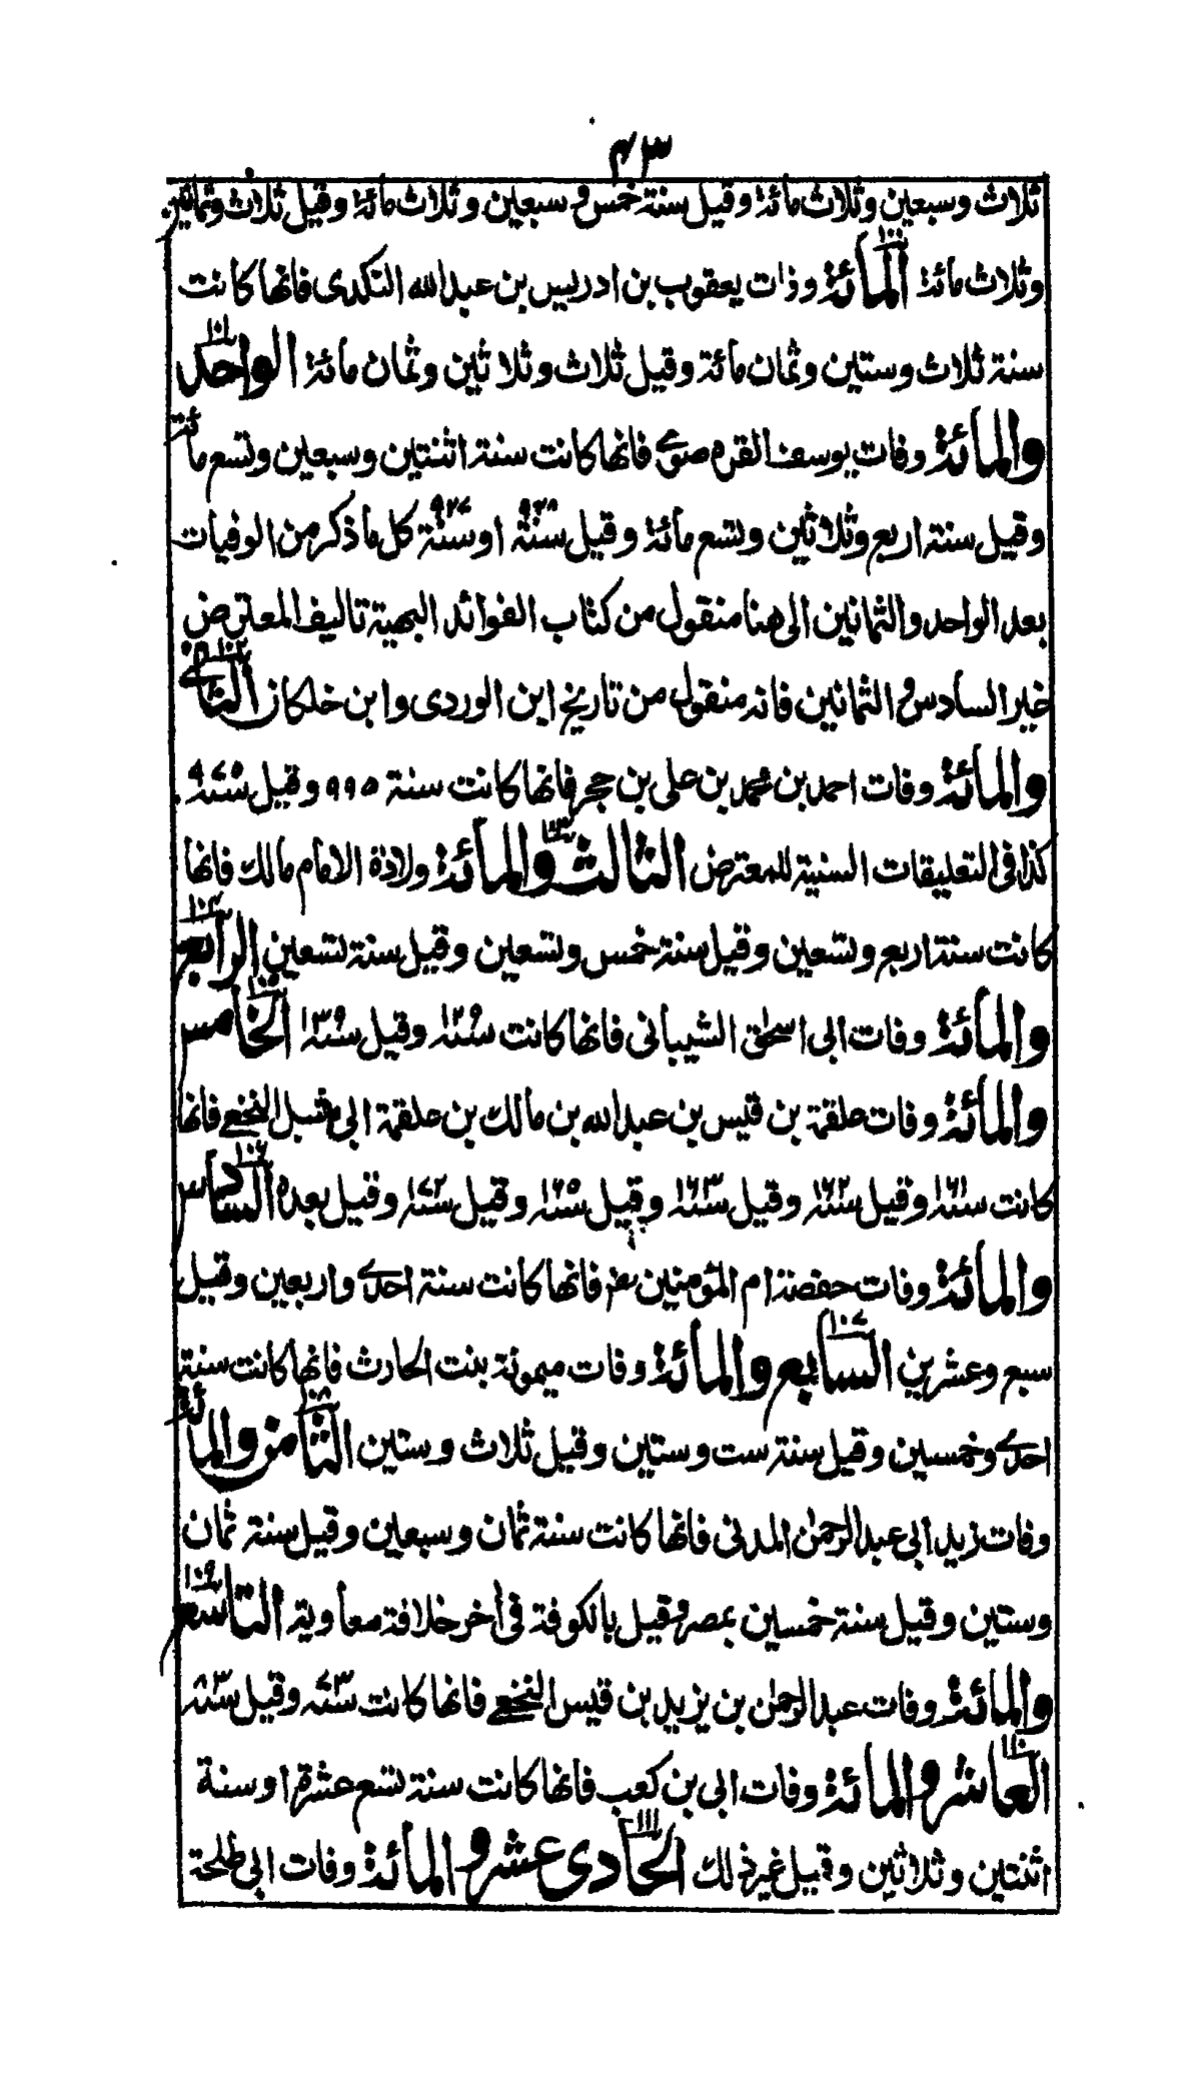 ٤٣
ثلاث وسبعين وثلاث مائة وقيل سنة خمس و سبعين و ثلاث مائة وقيل ثلاث وثمانين
وثلاث مائة المائة ١٠٠ وذات يعقوب بن ادريس بن عبدالله النكدى فانها كانت
سنة ثلاث وستين وثمان مائة وقيل ثلاث وثلاثين وثمان مائة الواحد ١٠١
والمائة وفات يوسف القره صوے فانها كانت سنة اثنتين وسبعين وتسع مائة
وقيل سنة اربع وثلاثين وتسع مائة وقيل سنة ٩٣٨ او سنة ٩٢٧ كل ما ذكر من الوفيات
بعد الواحد والثمانين الى هنا منقول من كتاب الفوائد البهية تاليف المعترض
غير السادس و الثمانين فانه منقول من تاريخ ابن الوردى وابن خلكان الثانے ١٠٢
والمائة وفات احمد بن محمد بن على بن حجر فانها كانت سنة ٩٩٥ وقيل سنة ٩٧٥
كذا فى التعليقات السنية للمعترض الثالث ١٠٣ والمائة ولادة الامام مالك فانها
كانت سنة اربع وتسعين وقيل سنة خمس وتسعين وقيل سنة تسعين الرابع ١٠٤
والمائة وفات ابى اسحق الشيبانى فانها كانت سنة ١٢٩ وقيل سنة ١٣٩ الخامس ١٠٥
والمائة وفات علقمة بن قيس بن عبدالله بن مالك بن علقمة ابى شبل النخعے فانها
كانت سنة ١٦١ وقيل سنة ١٦٢ وقيل سنة ١٦٣ وقيل سنة ١٦٥ وقيل سنة ١٧٢ وقيل بعده السادس ١٠٦
والمائة وفات حفصة ام المؤمنين رض فانها كانت سنة احدے واربعين وقيل
سبع وعشرين السابع ١٠٧ والمائة وفات ميمونة بنت الحارث فانها كانت سنة
احدے وخمسين وقيل سنة ست وستين وقيل ثلاث وستين الثامن ١٠٨ والمائة
وفات زيد ابى عبدالرحمن المدنى فانها كانت سنة ثمان وسبعين وقيل سنة ثمان
وستين وقيل سنة خمسين بمصر وقيل بالكوفة فى أخر خلافة معاوية التاسع ١٠٩
والمائة وفات عبدالرحمن بن يزيد بن قيس النخعے فانها كانت سنة ٧٣ وقيل سنة ٨٣
العاشر ١١٠ والمائة وفات ابى بن كعب فانها كانت سنة تسع عشرة او سنة
اثنتين وثلاثين وقيل غير ذلك الحادى ١١١ عشر والمائة وفات ابى طلحة